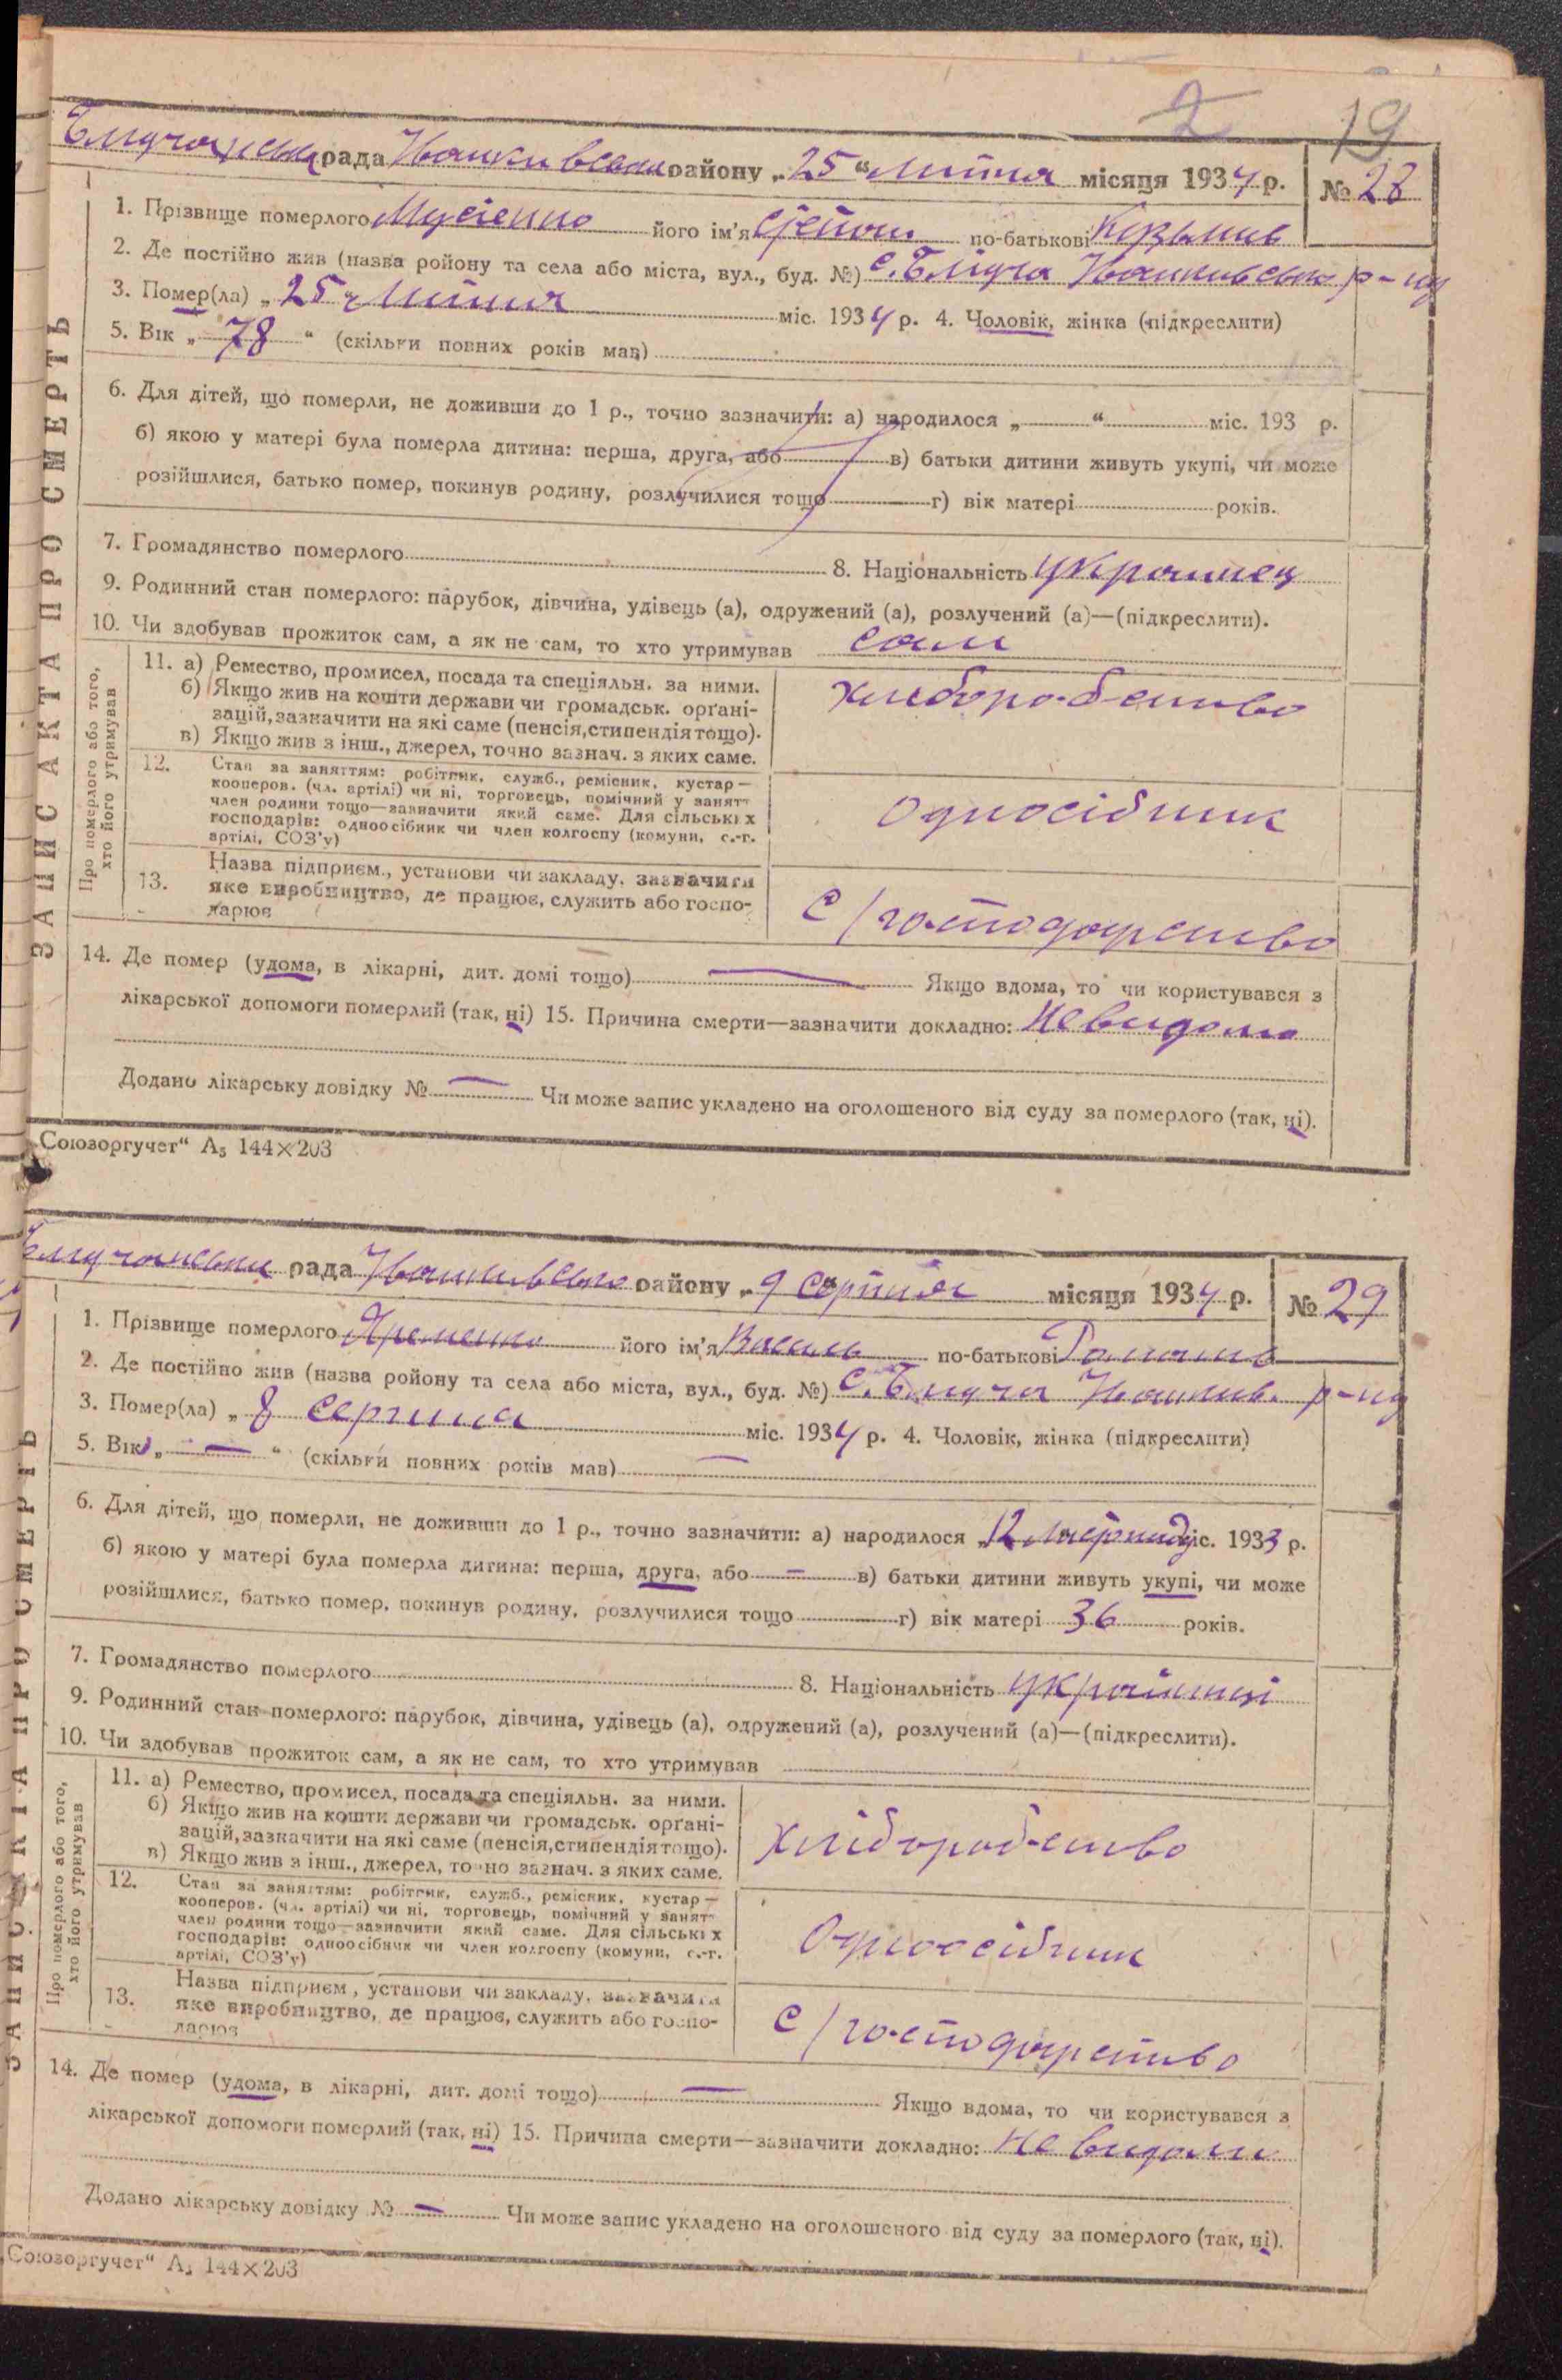 2 19
рада Іванківського району „25“ Липня місяця 1934 р. № 28
ЗАПИС АКТА ПРО СМЕРТЬ
1. Прізвище померлого Мусієнко його ім'я по-батькові
2. Де постійно жив (назва ройону та села або міста, вул., буд. №) с. Блідча Іванківського р-ну
3. Помер(ла) „25“ Липня міс. 1934 р. 4. Чоловік, жінка (підкреслити)
5. Вік „78“ (скільки повних років мав)
6. Для дітей, що померли, не доживши до 1 р., точно зазначити: а) народилося „ “ міс. 193 р.
б) якою у матері була померла дитина: перша, друга, або в) батьки дитини живуть укупі, чи може
розійшлися, батько помер, покинув родину, розлучилися тощо г) вік матері років.
7. Громадянство померлого 8. Національність українец
9. Родинний стан померлого: парубок, дівчина, удівець (а), одружений (а), розлучений (а)—(підкреслити).
10. Чи здобував прожиток сам, а як не сам, то хто утримував сам
Про померлого або того, хто його утримував
11. а) Ремество, промисел, посада та спеціяльн. за ними.
б) Якщо жив на кошти держави чи громадськ. орґані-
зацій, зазначити на які саме (пенсія, стипендія тощо).
в) Якщо жив з інш., джерел, точно зазнач. з яких саме.
хлиборобство
12. Стан за заняттям: робітник, служб., ремісник, кустар—
кооперов. (чл. артілі) чи ні, торговець, помічний у занятт
член родини тощо—зазначити який саме. Для сільських
господарів: одноосібник чи член колгоспу (комуни, с.-г.
артілі, СОЗ'у)
Односібник
13. Назва підприєм., установи чи закладу, зазначити
яке виробництво, де працює, служить або госпо-
дарює
С/господарство
14. Де помер (удома, в лікарні, дит. домі тощо) — Якщо вдома, то чи користувався з
лікарської допомоги померлий (так, ні) 15. Причина смерти—зазначити докладно: Невидомо
Додано лікарську довідку № — Чи може запис укладено на оголошеного від суду за померлого (так, ні).
„Союзоргучет“ А₅ 144×203
рада Іванківського району „9 серпня місяця 1934 р. № 29
ЗАПИС АКТА ПРО СМЕРТЬ
1. Прізвище померлого Яременко його ім'я Василь по-батькові Романів
2. Де постійно жив (назва ройону та села або міста, вул., буд. №) с. Блидча Іванків. р-ну
3. Помер(ла) „8 серпня міс. 1934 р. 4. Чоловік, жінка (підкреслити)
5. Вік „—“ (скільки повних років мав) —
6. Для дітей, що померли, не доживши до 1 р., точно зазначити: а) народилося „12 міс. 1933 р.
б) якою у матері була померла дитина: перша, друга, або — в) батьки дитини живуть укупі, чи може
розійшлися, батько помер, покинув родину, розлучилися тощо г) вік матері 36 років.
7. Громадянство померлого 8. Національність українці
9. Родинний стан померлого: парубок, дівчина, удівець (а), одружений (а), розлучений (а)—(підкреслити).
10. Чи здобував прожиток сам, а як не сам, то хто утримував
Про померлого або того, хто його утримував
11. а) Ремество, промисел, посада та спеціяльн. за ними.
б) Якщо жив на кошти держави чи громадськ. орґані-
зацій, зазначити на які саме (пенсія, стипендія тощо).
в) Якщо жив з інш., джерел, точно зазнач. з яких саме.
Хліборобство
12. Стан за заняттям: робітник, служб., ремісник, кустар—
кооперов. (чл. артілі) чи ні, торговець, помічний у занятт
член родини тощо—зазначити який саме. Для сільських
господарів: одноосібник чи член колгоспу (комуни, с.-г.
артілі, СОЗ'у)
Одноосібник
13. Назва підприєм., установи чи закладу, зазначити
яке виробництво, де працює, служить або госпо-
дарює
С/господарство
14. Де помер (удома, в лікарні, дит. домі тощо) — Якщо вдома, то чи користувався з
лікарської допомоги померлий (так, ні) 15. Причина смерти—зазначити докладно: Невидомо
Додано лікарську довідку № — Чи може запис укладено на оголошеного від суду за померлого (так, ні).
„Союзоргучет“ А₅ 144×203